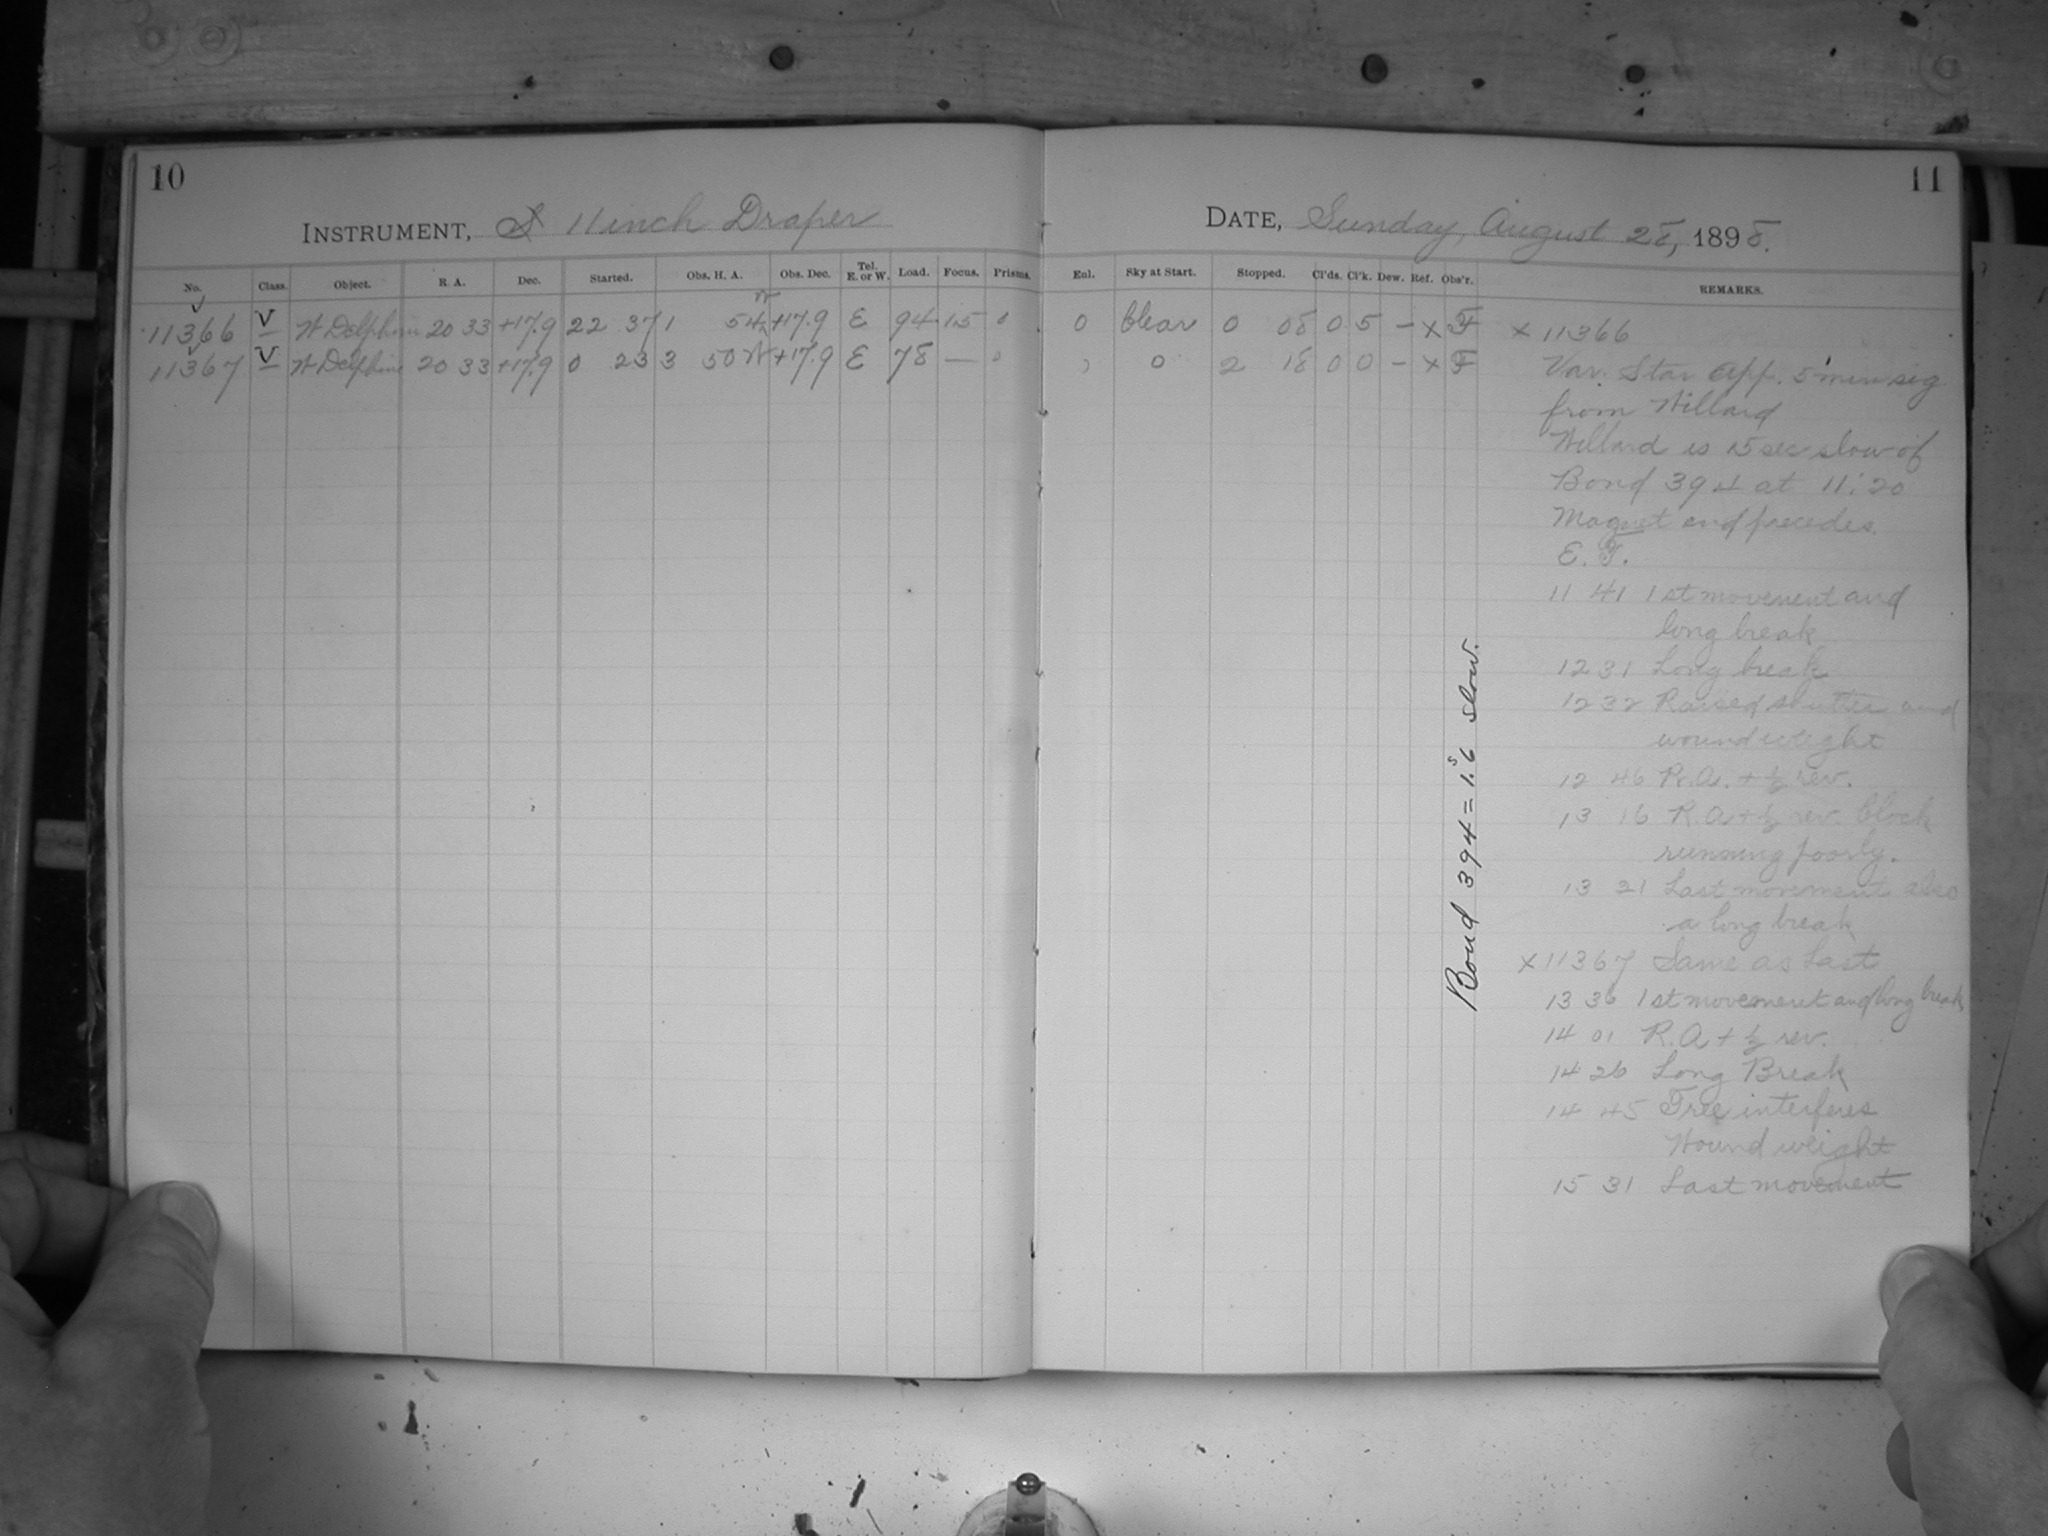 10
INSTRUMENT, 11 inch Draper
No. Class. Object. R. A. Dec. Started. Obs. H. A. Obs. Dec. Tel. E. or W. Load. Focus. Prisms.
11366 V W Delphini 20 33 +17.9 22 37 1 54 W +17.9 E 94 1.5 0
11367 V W Delphini 20 33 +17.9 0 23 3 50 W +17.9 E 78 — 0
11
DATE, Sunday, August 28, 1898.
Eul. Sky at Start. Stopped. Cl'ds. Cl'k. Dew. Ref. Obs'r. REMARKS.
0 Clear 0 08 0 5 – x F
0 2 18 0 0 – x F
x 11366
Var. Star app. 5 min sig
from Willard
Willard is 15 sec slow of
Bond 394 at 11:20
Magnet end precedes.
E. F.
11 41 1st movement and
long break
12 31 Long break
12 32 Raised shutter and
wound weight
12 46 R.A. + ½ rev.
13 16 R.A + ½ rev. Clock
running poorly.
13 21 Last movement also
a long break
x 11367 Same as Last
13 36 1st movement and long break
14 01 R.A + ½ rev.
14 26 Long Break
14 45 Tree interferes
Wound weight
15 31 Last movement
Bond 394 = 1.6 slow.